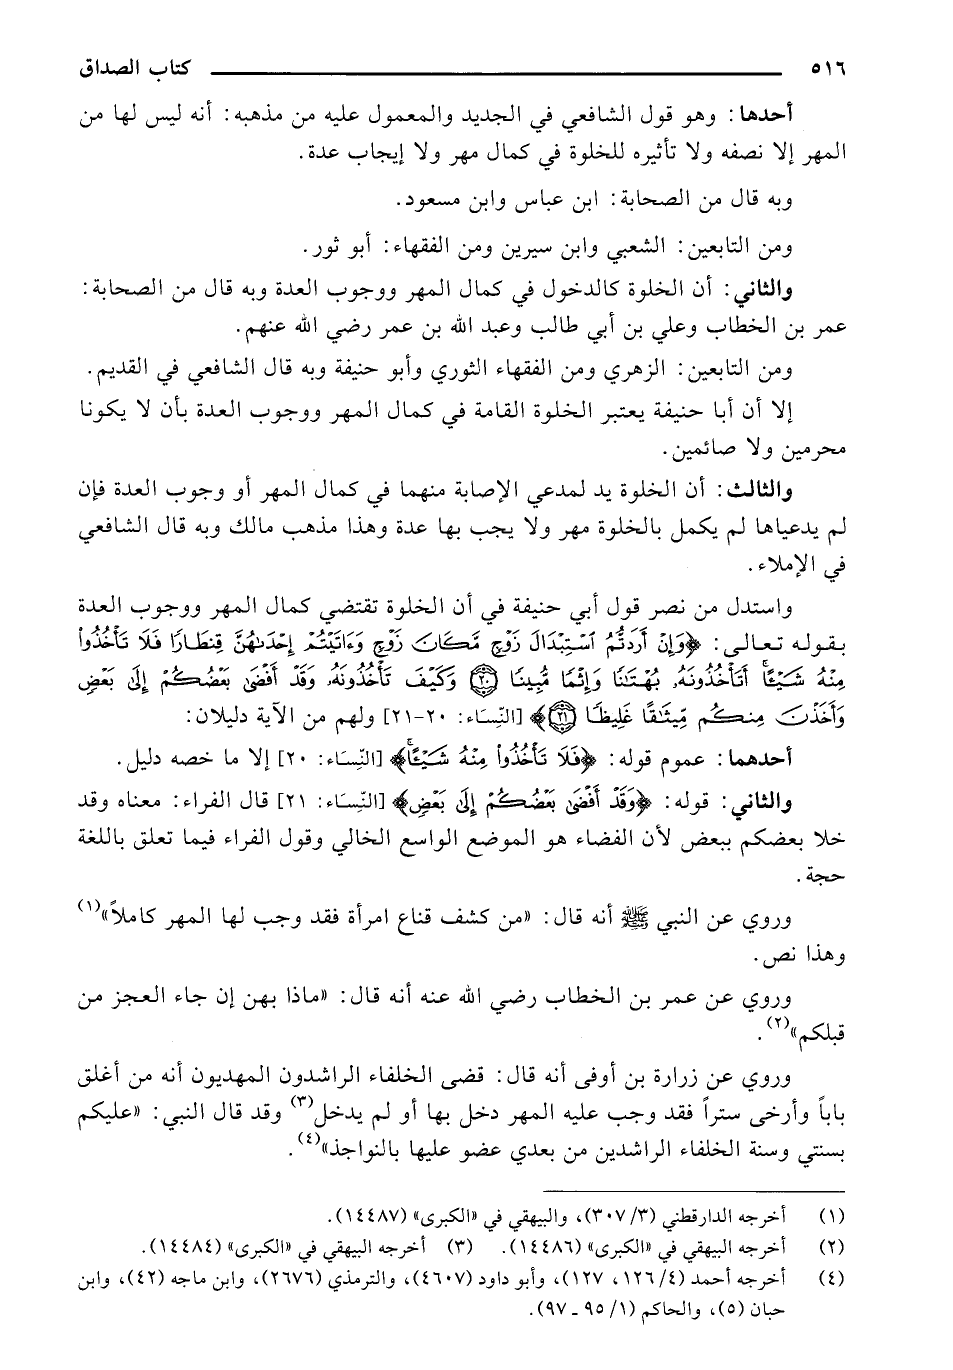 ٥١٦ كتاب الصداق
أحدها: وهو قول الشافعي في الجديد والمعمول عليه من مذهبه: أنه ليس لها من
المهر إلا نصفه ولا تأثيره للخلوة في كمال مهر ولا إيجاب عدة.
وبه قال من الصحابة: ابن عباس وابن مسعود.
ومن التابعين: الشعبي وابن سيرين ومن الفقهاء: أبو ثور.
والثاني: أن الخلوة كالدخول في كمال المهر ووجوب العدة وبه قال من الصحابة:
عمر بن الخطاب وعلي بن أبي طالب وعبد الله بن عمر رضي الله عنهم.
ومن التابعين: الزهري ومن الفقهاء الثوري وأبو حنيفة وبه قال الشافعي في القديم.
إلا أن أبا حنيفة يعتبر الخلوة القامة في كمال المهر ووجوب العدة بأن لا يكونا
محرمين ولا صائمين.
والثالث: أن الخلوة يد لمدعي الإصابة منهما في كمال المهر أو وجوب العدة فإن
لم يدعياها لم يكمل بالخلوة مهر ولا يجب بها عدة وهذا مذهب مالك وبه قال الشافعي
في الإملاء.
واستدل من نصر قول أبي حنيفة في أن الخلوة تقتضي كمال المهر ووجوب العدة
بقوله تعالى: ﴿وَإِنْ أَرَدتُّمُ اسْتِبْدَالَ زَوْجٍ مَّكَانَ زَوْجٍ وَءَاتَيْتُمْ إِحْدَىٰهُنَّ قِنطَارًا فَلَا تَأْخُذُواْ
مِنْهُ شَيْئًاۚ أَتَأْخُذُونَهُۥ بُهْتَٰنًا وَإِثْمًا مُّبِينًا ﴿٢٠﴾ وَكَيْفَ تَأْخُذُونَهُۥ وَقَدْ أَفْضَىٰ بَعْضُكُمْ إِلَىٰ بَعْضٍ
وَأَخَذْنَ مِنكُم مِّيثَٰقًا غَلِيظًا ﴿٢١﴾﴾ [النِّسَاء: ٢٠-٢١] ولهم من الآية دليلان:
أحدهما: عموم قوله: ﴿فَلَا تَأْخُذُواْ مِنْهُ شَيْئًاۚ﴾ [النِّسَاء: ٢٠] إلا ما خصه دليل.
والثاني: قوله: ﴿وَقَدْ أَفْضَىٰ بَعْضُكُمْ إِلَىٰ بَعْضٍ﴾ [النِّسَاء: ٢١] قال الفراء: معناه وقد
خلا بعضكم ببعض لأن الفضاء هو الموضع الواسع الخالي وقول الفراء فيما تعلق باللغة
حجة.
وروي عن النبي ﷺ أنه قال: «من كشف قناع امرأة فقد وجب لها المهر كاملاً»(١)
وهذا نص.
وروي عن عمر بن الخطاب رضي الله عنه أنه قال: «ماذا بهن إن جاء العجز من
قبلكم»(٢).
وروي عن زرارة بن أوفى أنه قال: قضى الخلفاء الراشدون المهديون أنه من أغلق
باباً وأرخى ستراً فقد وجب عليه المهر دخل بها أو لم يدخل(٣) وقد قال النبي: «عليكم
بسنتي وسنة الخلفاء الراشدين من بعدي عضو عليها بالنواجذ»(٤).
(١) أخرجه الدارقطني (٣/٣٠٧)، والبيهقي في «الكبرى» (١٤٤٨٧).
(٢) أخرجه البيهقي في «الكبرى» (١٤٤٨٦). (٣) أخرجه البيهقي في «الكبرى» (١٤٤٨٤).
(٤) أخرجه أحمد (٤/١٢٦، ١٢٧)، وأبو داود (٤٦٠٧)، والترمذي (٢٦٧٦)، وابن ماجه (٤٢)، وابن
حبان (٥)، والحاكم (١/٩٥ ـ ٩٧).